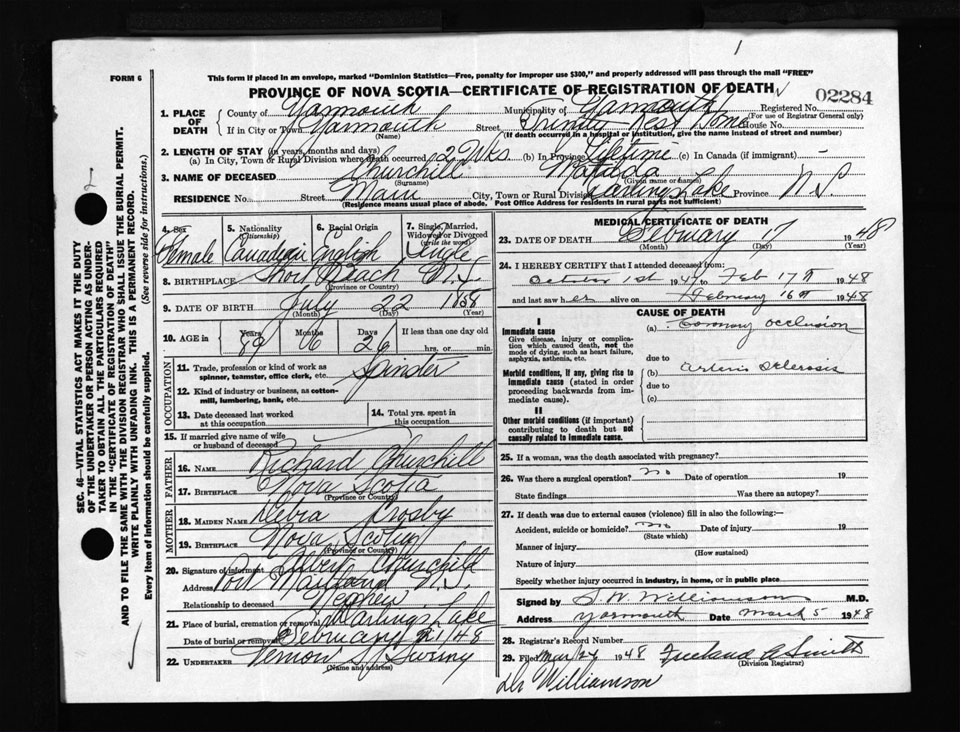 1
FORM 6
This form if placed in an envelope, marked "Dominion Statistics—Free, penalty for improper use $300," and properly addressed will pass through the mail "FREE"
PROVINCE OF NOVA SCOTIA—CERTIFICATE OF REGISTRATION OF DEATH
02284
1. PLACE OF DEATH
County of Yarmouth Municipality of Yarmouth Registered No.
(For use of Registrar General only)
If in City or Town Yarmouth Street Trinity Rest Home House No.
(Name) (If death occurred in a hospital or institution, give the name instead of street and number)
2. LENGTH OF STAY (in years, months and days)
(a) In City, Town or Rural Division where death occurred 2 Wks (b) in Province Lifetime (c) In Canada (if immigrant) —
3. NAME OF DECEASED Churchill Matilda
(Surname) (Given name or names)
RESIDENCE No. Street Main City, Town or Rural Division Darlings Lake Province N.S.
(Residence means usual place of abode. Post Office Address for Residents in rural parts not sufficient)
4. Sex 5. Nationality (Citizenship) 6. Racial Origin 7. Single, Married, Widowed or Divorced (write the word)
Female Canadian English Single
8. BIRTHPLACE Short Beach N.S.
(Province or Country)
9. DATE OF BIRTH July 22 1858
(Month) (Day) (Year)
10. AGE in Years Months Days If less than one day old
89 06 26 hrs. or min.
OCCUPATION
11. Trade, profession or kind of work as spinner, teamster, office clerk, etc.
12. Kind of industry or business, as cotton-mill, lumbering, bank, etc.
13. Date deceased last worked at this occupation
14. Total yrs. spent in this occupation
15. If married give name of wife or husband of deceased —
FATHER
16. NAME Richard Churchill
17. BIRTHPLACE Nova Scotia
(Province or Country)
MOTHER
18. MAIDEN NAME Crosby
19. BIRTHPLACE Nova Scotia
(Province or Country)
20. Signature of informant Churchill
Address Port Maitland N.S.
Relationship to deceased Nephew
21. Place of burial, cremation or removal Darlings Lake
Date of burial or removal February 21/48
22. UNDERTAKER Vernon Sweeny
(Name and address)
MEDICAL CERTIFICATE OF DEATH
23. DATE OF DEATH February 17 1948
(Month) (Day) (Year)
24. I HEREBY CERTIFY that I attended deceased from:
October 1st 1947 Feb 17th 1948
and last saw her alive on February 16th 1948
CAUSE OF DEATH
I
Immediate cause
Give disease, injury or complication which caused death, not the mode of dying, such as heart failure, asphyxia, asthenia, etc.
(a) Coronary occlusion
due to
Morbid conditions, if any, giving rise to immediate cause (stated in order proceeding backwards from immediate cause).
(b) Arterio Sclerosis
due to
(c)
II
Other morbid conditions (if important) contributing to death but not causally related to immediate cause.
25. If a woman, was the death associated with pregnancy?
26. Was there a surgical operation? no Date of operation 19
State findings Was there an autopsy?
27. If death was due to external causes (violence) fill in also the following:—
Accident, suicide or homicide? no Date of injury 19
(State which)
Manner of injury
(How sustained)
Nature of injury
Specify whether injury occurred in industry, in home, or in public place
Signed by S. W. Williamson M.D.
Address Yarmouth Date March 5 1948
28. Registrar's Record Number
29. Filed Mar 24 1948 Freeland A Smith
(Division Registrar)
Dr Williamson
SEC. 46—VITAL STATISTICS ACT MAKES IT THE DUTY
OF THE UNDERTAKER OR PERSON ACTING AS UNDER-
TAKER TO OBTAIN ALL THE PARTICULARS REQUIRED
IN THE "CERTIFICATE OF REGISTRATION OF DEATH"
AND TO FILE THE SAME WITH THE DIVISION REGISTRAR WHO SHALL ISSUE THE BURIAL PERMIT.
WRITE PLAINLY WITH UNFADING INK. THIS IS A PERMANENT RECORD.
Every item of information should be carefully supplied. (See reverse side for instructions.)